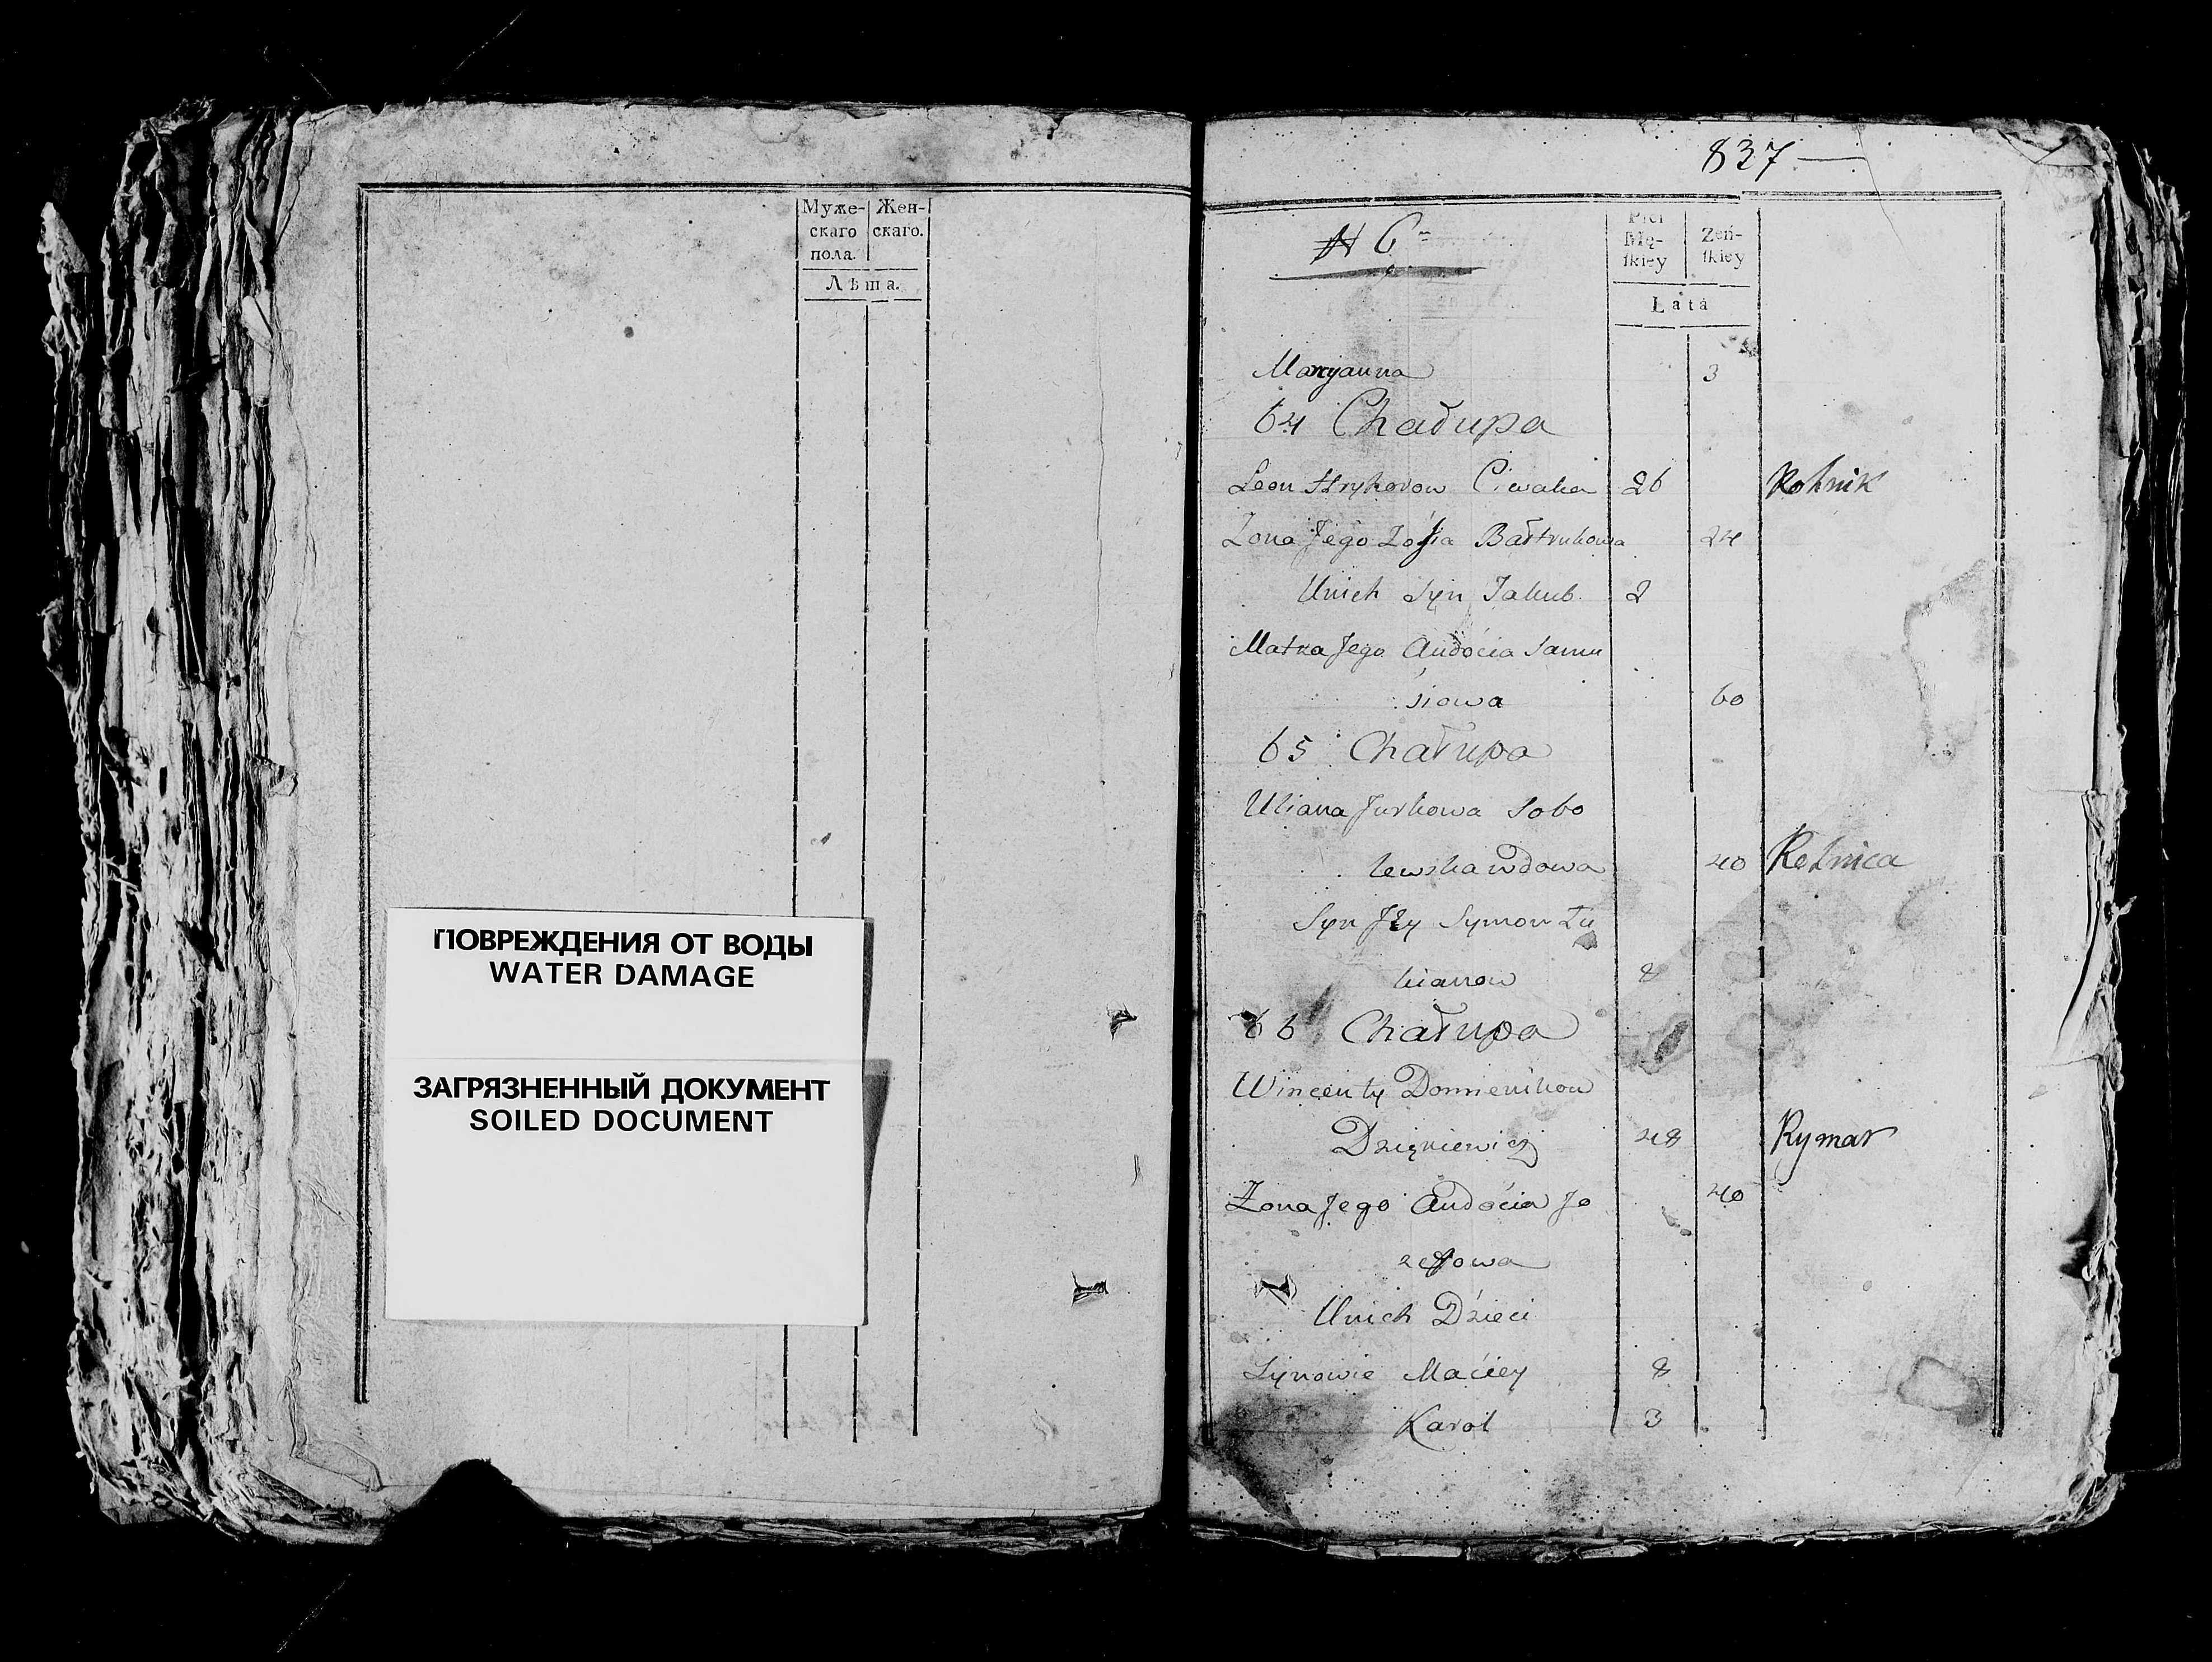 Муже- Жен-
скаго скаго.
пола.
Лѣта.
ПОВРЕЖДЕНИЯ ОТ ВОДЫ
WATER DAMAGE
ЗАГРЯЗНЕННЫЙ ДОКУМЕНТ
SOILED DOCUMENT
837
N 6
Płci
Mę- Żeń-
skiey skiey
Latá
Maryanna 3
64 Chałupa
Leon 26 Rolnik
Zona Jego Zofia Bałtrukowa 24
Unich Syn Jakub 2
Matka Jego Audócia Samu
siowa 60
65 Chałupa
Uliana Jurkowa Sobo
lewska wdowa 40 Rolnica
Syn Jey Symon Łu
kianow 8
66 Chałupa
Wincenty Domienikow
Dziękiewicz 48 Rymar
Żona Jego Audócia Jo 40
zeffowa
Unich Dzieci
Synowie Maciey 8
Karol 3